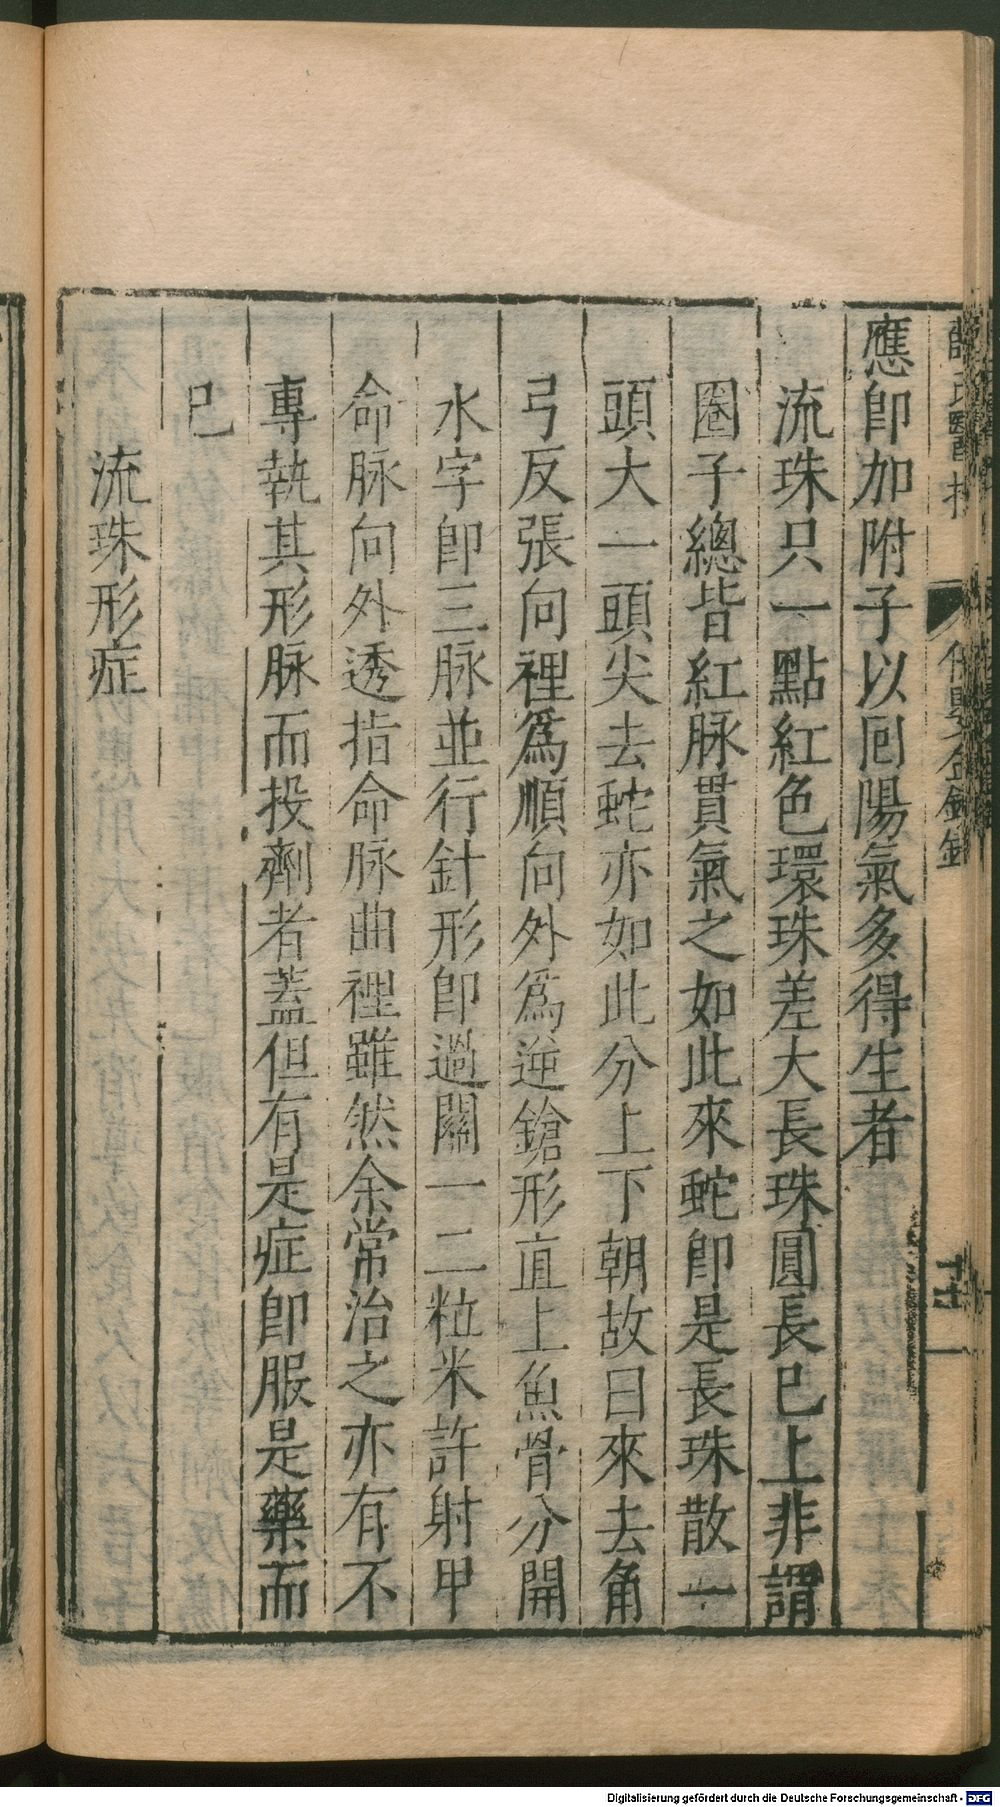 應卽加附子以囘陽氣多得生者
流珠只一點紅色環珠差大長珠圓長已上非謂
圈子總皆紅脉貫氣之如此來蛇卽是長珠散一
頭大一頭尖去蛇亦如此分上下朝故曰來去角
弓反張向裡爲順向外爲逆鎗形直上魚骨分開
水字卽三脉並行針形卽過關一二粒米許射甲
命脉向外透指命脉曲裡雖然余常治之亦有不
專執其形脉而投劑者蓋但有是症卽服是藥而
已
流珠形症
Digitalisierung gefördert durch die Deutsche Forschungsgemeinschaft - DFG